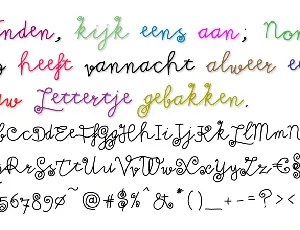 nden, kijk eens aan; Non
heeft vannacht alweer e
uw Lettertje gebakken.
bCcDdEeFfGgHhIiJjKkLlMmN
RrSsTtUuVvWwXxYyZz€$
567890~@#$%^&*()_+-=?><